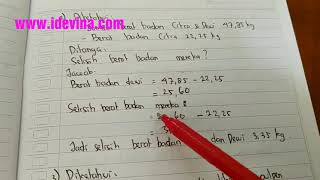 www.idevina.com
Diketahui
berat badan Citra & Dewi 47,85 kg
- Berat badan Citra 22,25 kg
Ditanya:
Selisih berat badan mereka?
Jawab:
Berat badan dewi = 47,85 - 22,25
= 25,60
Selisih berat badan mereka:
60 - 22,25
Jadi selisih berat badan dan Dewi 3,35 kg
Diketahui: